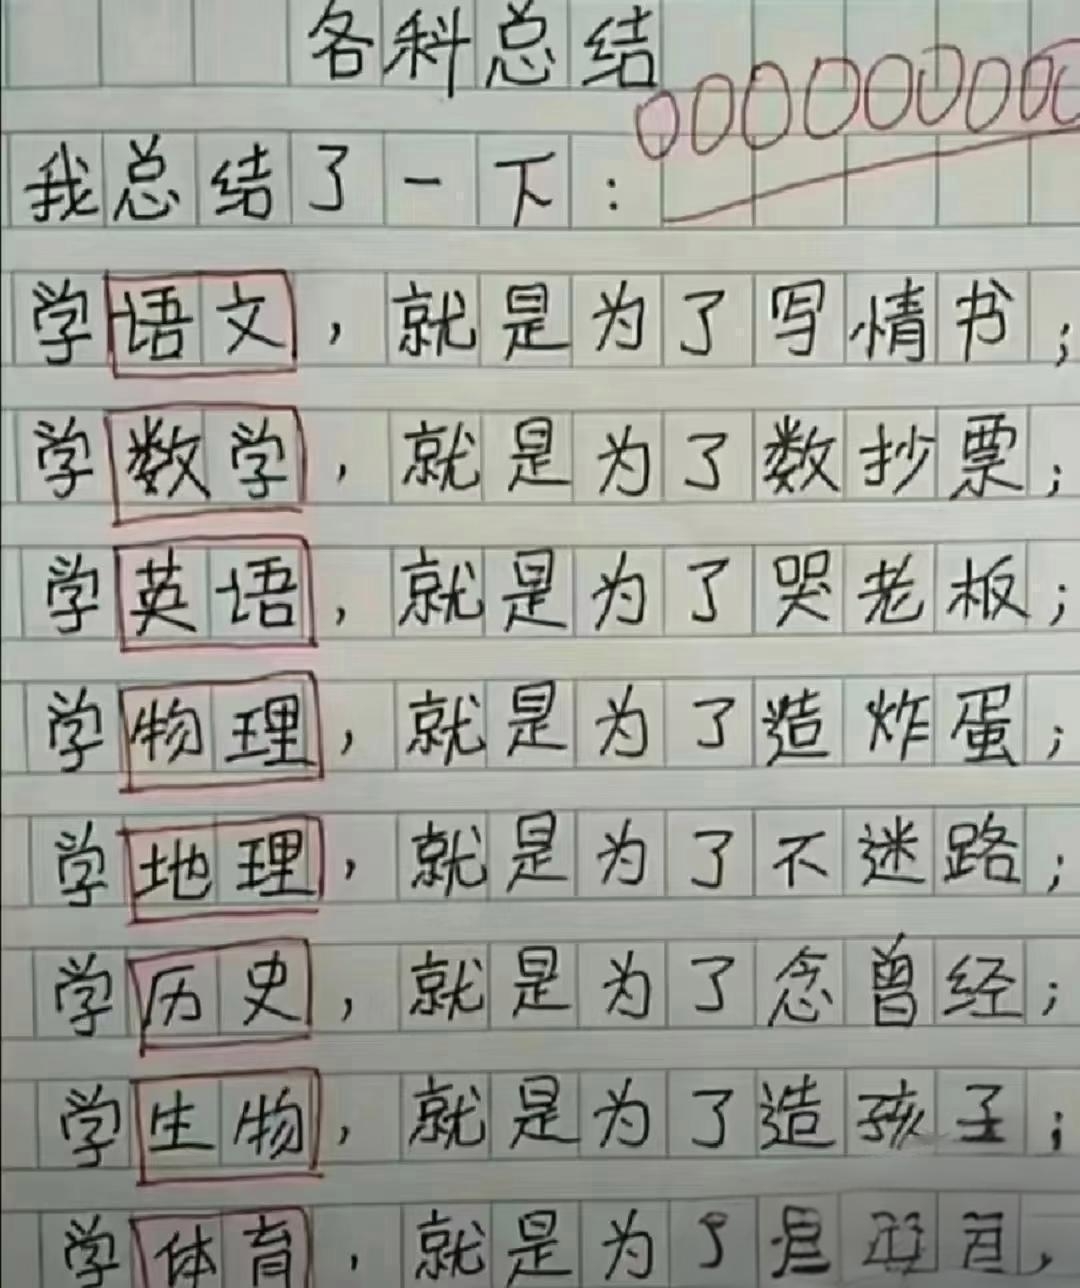 各科总结
我总结了一下：
学语文，就是为了写情书；
学数学，就是为了数抄票；
学英语，就是为了哭老板；
学物理，就是为了造炸蛋；
学地理，就是为了不迷路；
学历史，就是为了念曾经；
学生物，就是为了造孩子；
学体育，就是为了